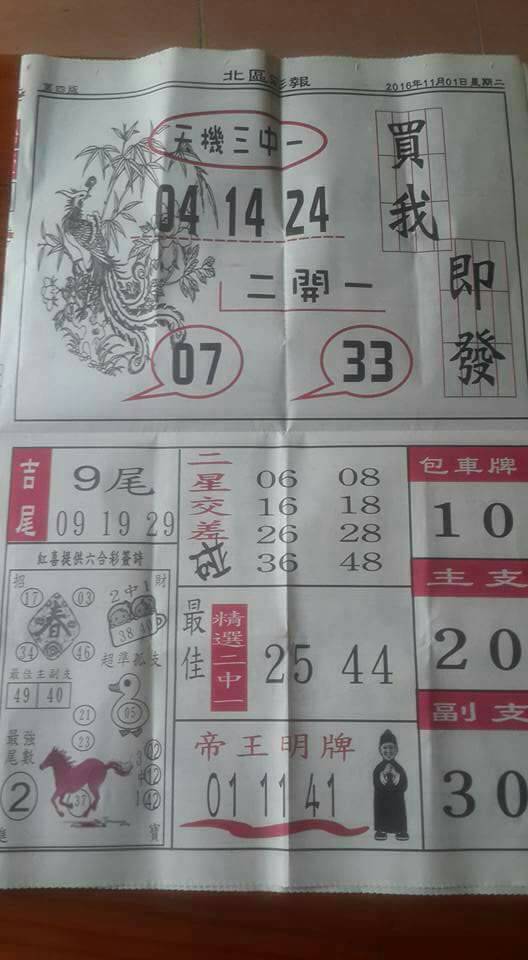 第四版
北區彩報
2016年11月01日星期二
天機三中一
04 14 24
二開一
07 33
買我
即發
吉尾
9尾
09 19 29
紅喜提供六合彩簽詩
招
財
17 03
春
34 46
2中1
38
超準孤支
最佳主副支
49 40
05
21
23
最強尾數
2
37
3中1
02
12
42
進
寶
二星交差
06 08
16 18
26 28
36 48
最佳
精選二中一
25 44
帝王明牌
01 11 41
包車牌
10
主支
20
副支
30